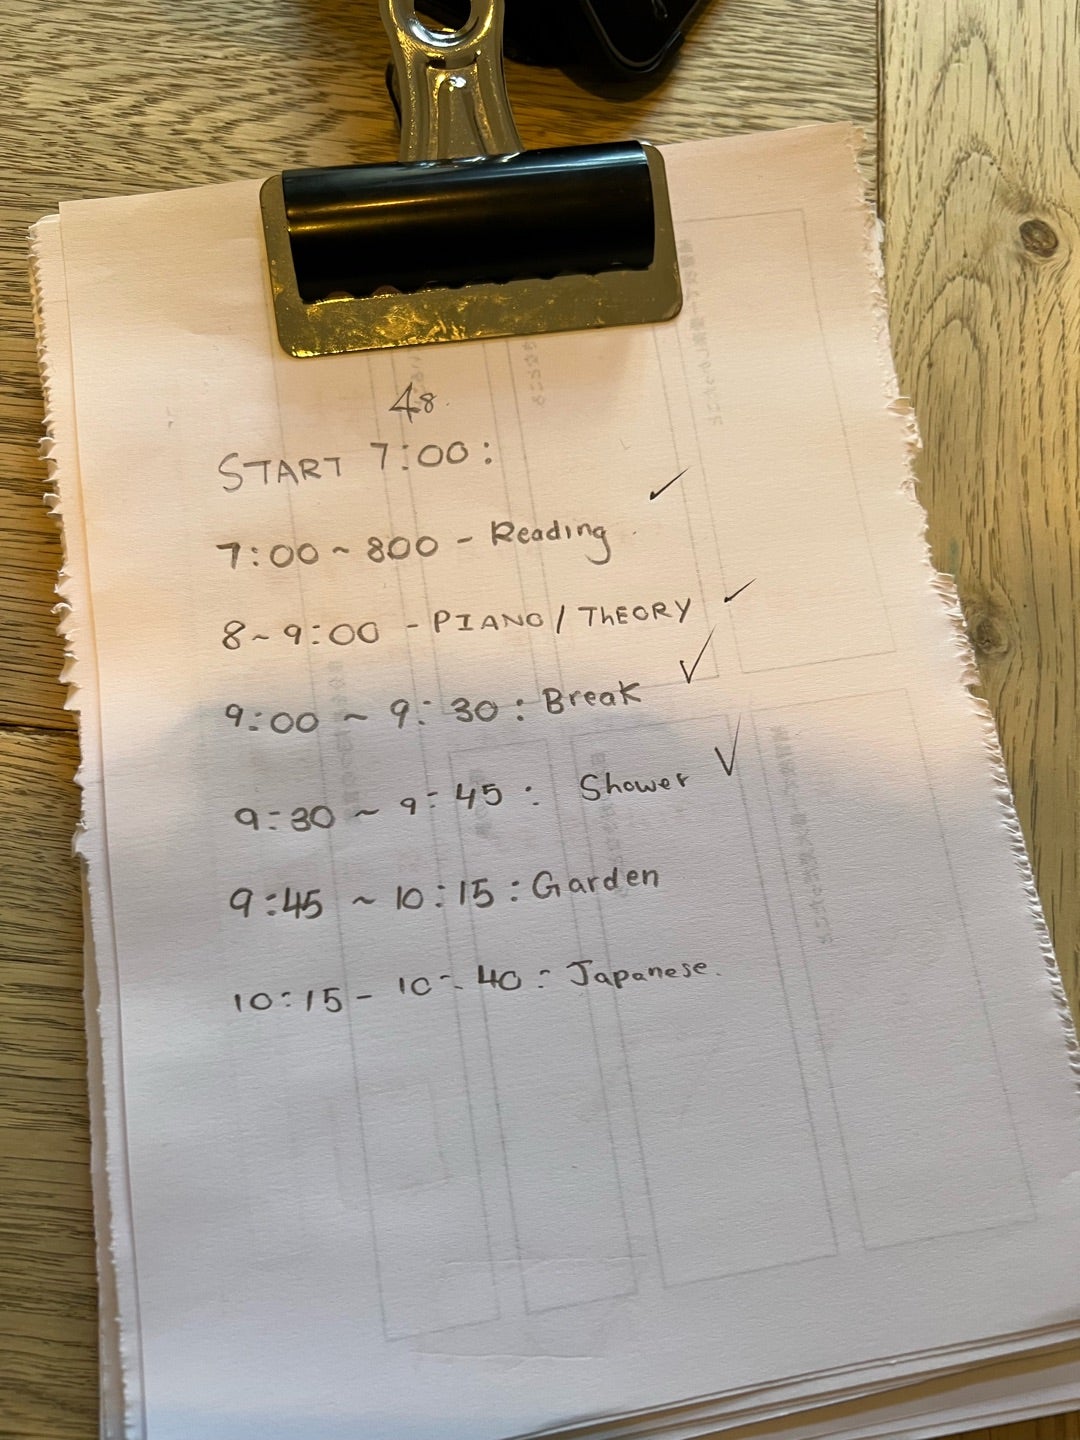 48.
START 7:00:
7:00 ~ 800 - Reading
8 ~ 9:00 - PIANO / THEORY
9:00 ~ 9:30 : Break
9:30 ~ 9:45 : Shower
9:45 ~ 10:15 : Garden
10:15 - 10:40 : Japanese.